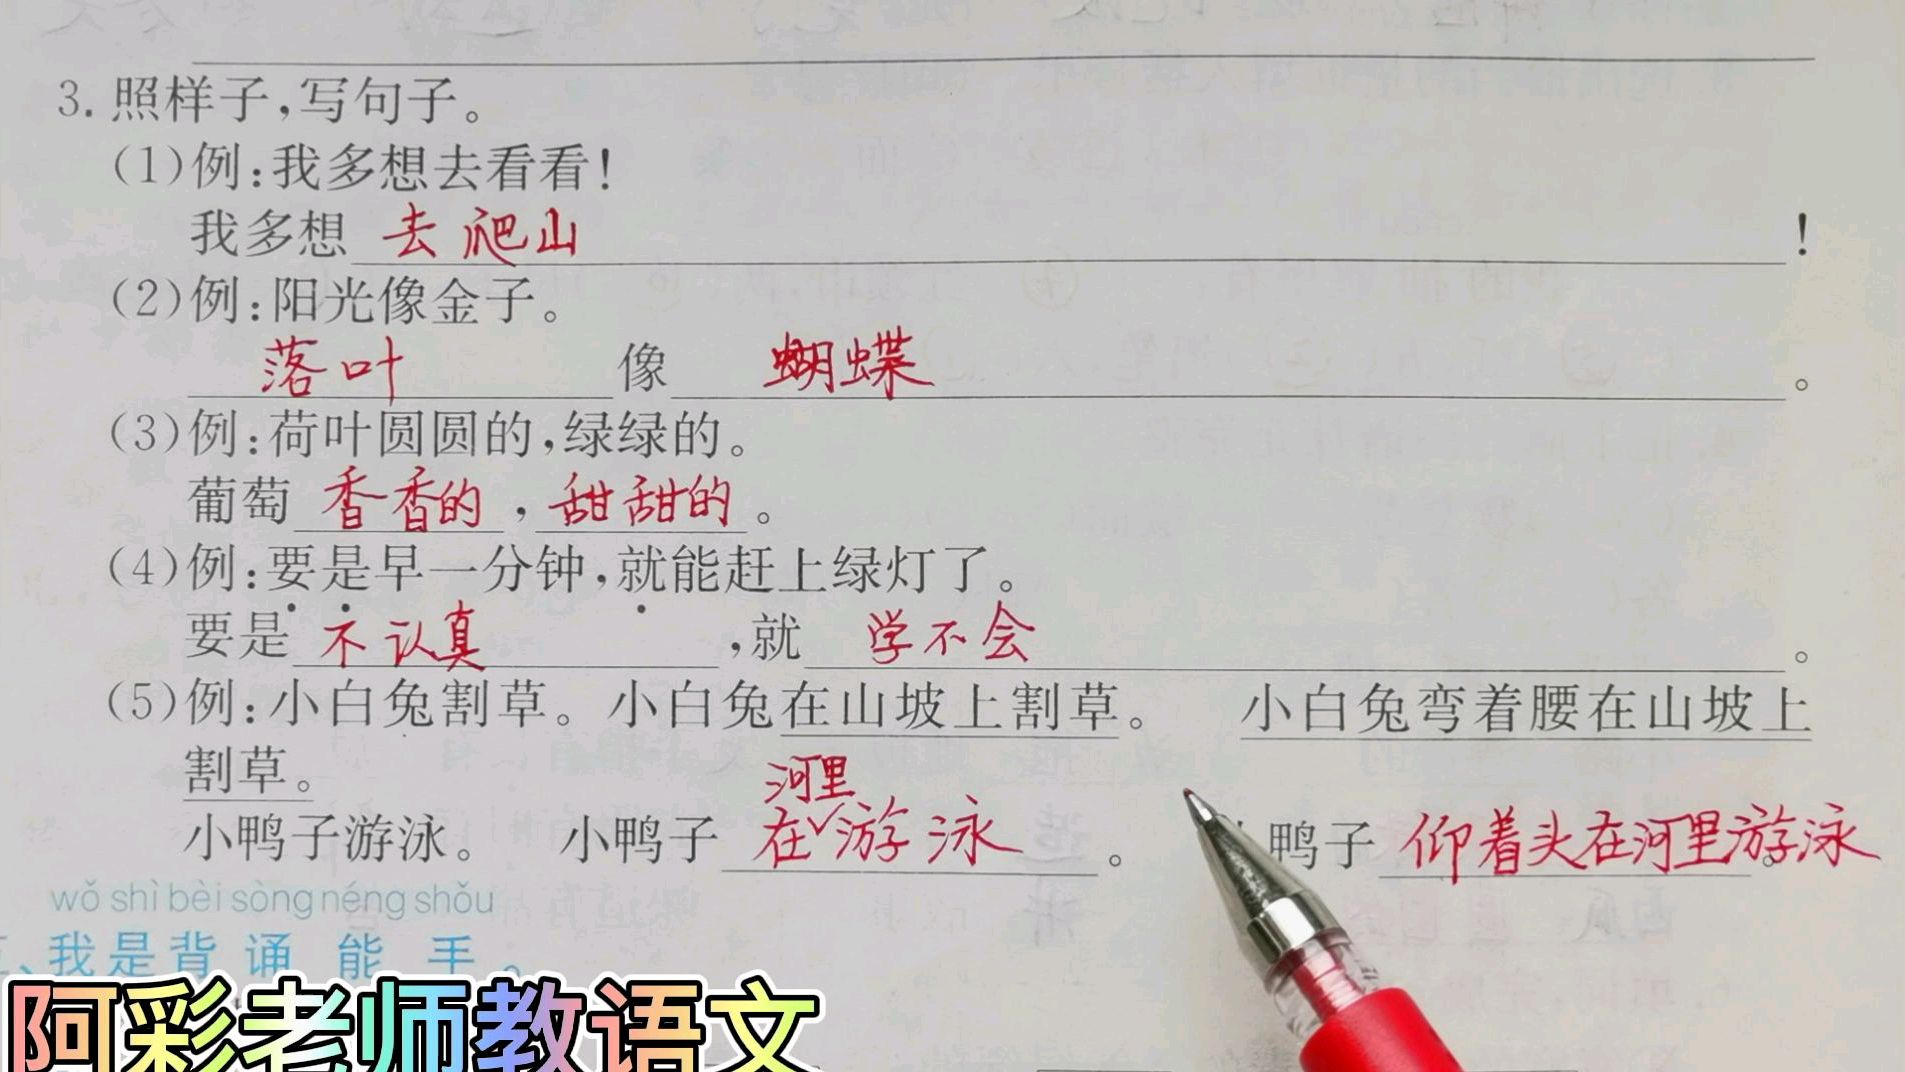 3.照样子,写句子。
(1)例:我多想去看看!
我多想 去爬山 !
(2)例:阳光像金子。
落叶 像 蝴蝶 。
(3)例:荷叶圆圆的,绿绿的。
葡萄 香香的 , 甜甜的 。
(4)例:要是早一分钟,就能赶上绿灯了。
要是 不认真 ,就 学不会 。
(5)例:小白兔割草。小白兔在山坡上割草。 小白兔弯着腰在山坡上
割草。
小鸭子游泳。 小鸭子 在河里游泳 。 鸭子 仰着头在河里游泳。
wǒ shì bèi sòng néng shǒu
、我是背诵能手。
阿彩老师教语文